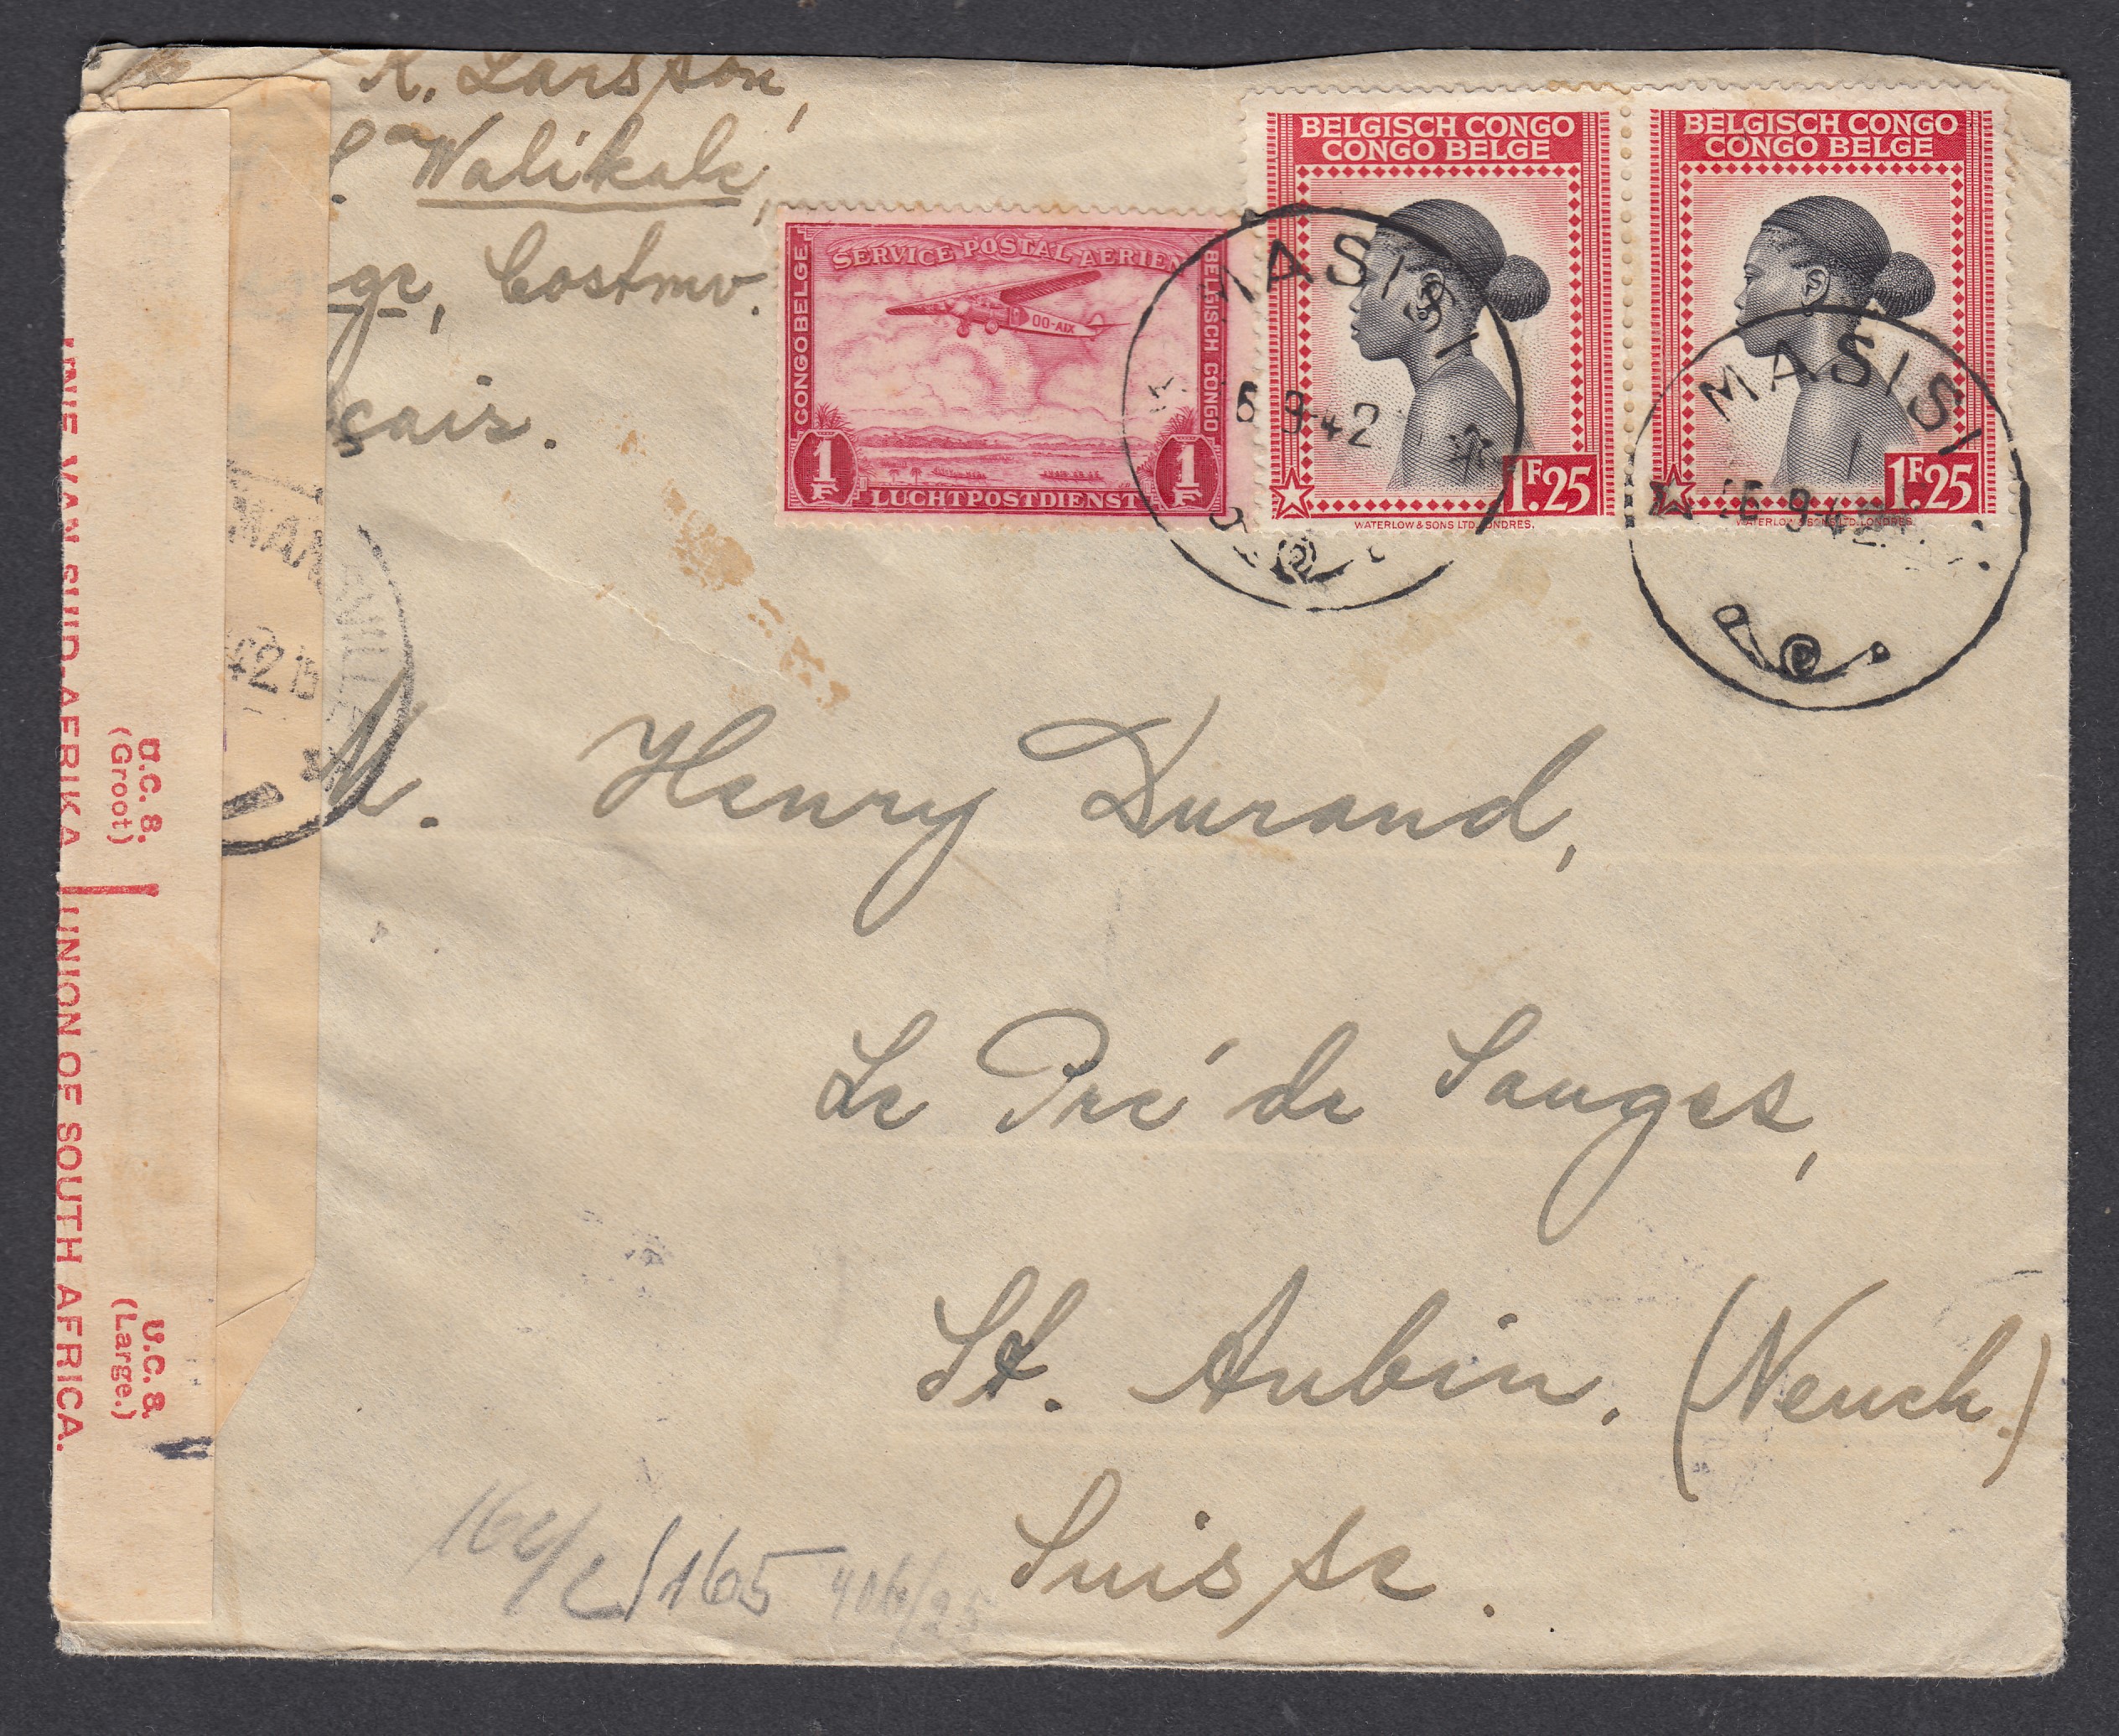 K. Larsson,
Walikale,
ge, Costmv.
çais.
BELGISCH CONGO
CONGO BELGE
1F.25
WATERLOW & SONS LTD. LONDRES.
BELGISCH CONGO
CONGO BELGE
1F.25
WATERLOW & SONS LTD. LONDRES.
SERVICE POSTAL AERIEN
CONGO BELGE
BELGISCH CONGO
OO-AIX
1F
1F
LUCHTPOSTDIENST
MASISI
6 9-42
MASISI
16-9-42
42 15
M. Henry Durand,
Le Pré de Sauges,
St. Aubin. (Neuch.)
Suisse.
UNIE VAN SUID-AFRIKA
UNION OF SOUTH AFRICA.
U.C. 8.
(Groot)
U.C. 8.
(Large.)
165